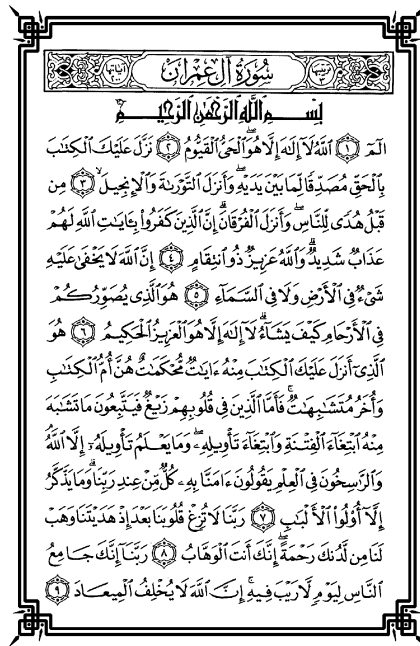 ترتيبها ٣ سُورَةُ آلِ عِمْرَانَ آياتها ٢٠٠
بِسْمِ اللَّهِ الرَّحْمَٰنِ الرَّحِيمِ
الٓمٓ ١ اللَّهُ لَا إِلَٰهَ إِلَّا هُوَ الْحَىُّ الْقَيُّومُ ٢ نَزَّلَ عَلَيْكَ الْكِتَٰبَ
بِالْحَقِّ مُصَدِّقًا لِّمَا بَيْنَ يَدَيْهِ وَأَنزَلَ التَّوْرَىٰةَ وَالْإِنجِيلَ ٣ مِن
قَبْلُ هُدًى لِّلنَّاسِ وَأَنزَلَ الْفُرْقَانَ إِنَّ الَّذِينَ كَفَرُوا بِـَٔايَٰتِ اللَّهِ لَهُمْ
عَذَابٌ شَدِيدٌ وَاللَّهُ عَزِيزٌ ذُو انتِقَامٍ ٤ إِنَّ اللَّهَ لَا يَخْفَىٰ عَلَيْهِ
شَىْءٌ فِى الْأَرْضِ وَلَا فِى السَّمَآءِ ٥ هُوَ الَّذِى يُصَوِّرُكُمْ
فِى الْأَرْحَامِ كَيْفَ يَشَآءُ لَا إِلَٰهَ إِلَّا هُوَ الْعَزِيزُ الْحَكِيمُ ٦ هُوَ
الَّذِىٓ أَنزَلَ عَلَيْكَ الْكِتَٰبَ مِنْهُ ءَايَٰتٌ مُّحْكَمَٰتٌ هُنَّ أُمُّ الْكِتَٰبِ
وَأُخَرُ مُتَشَٰبِهَٰتٌ فَأَمَّا الَّذِينَ فِى قُلُوبِهِمْ زَيْغٌ فَيَتَّبِعُونَ مَا تَشَٰبَهَ
مِنْهُ ابْتِغَآءَ الْفِتْنَةِ وَابْتِغَآءَ تَأْوِيلِهِ وَمَا يَعْلَمُ تَأْوِيلَهُۥٓ إِلَّا اللَّهُ
وَالرَّٰسِخُونَ فِى الْعِلْمِ يَقُولُونَ ءَامَنَّا بِهِ كُلٌّ مِّنْ عِندِ رَبِّنَا وَمَا يَذَّكَّرُ
إِلَّآ أُو۟لُوا الْأَلْبَٰبِ ٧ رَبَّنَا لَا تُزِغْ قُلُوبَنَا بَعْدَ إِذْ هَدَيْتَنَا وَهَبْ
لَنَا مِن لَّدُنكَ رَحْمَةً إِنَّكَ أَنتَ الْوَهَّابُ ٨ رَبَّنَآ إِنَّكَ جَامِعُ
النَّاسِ لِيَوْمٍ لَّا رَيْبَ فِيهِ إِنَّ اللَّهَ لَا يُخْلِفُ الْمِيعَادَ ٩